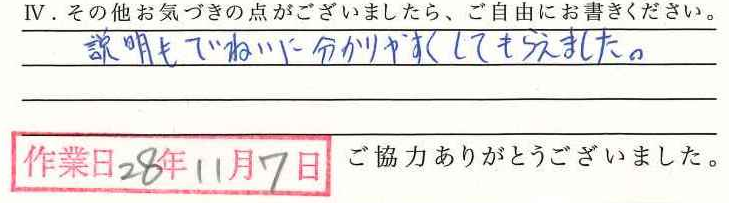 Ⅳ．その他お気づきの点がございましたら、ご自由にお書きください。
説明もていねいに分かりやすくしてもらえました。
作業日28年11月7日
ご協力ありがとうございました。